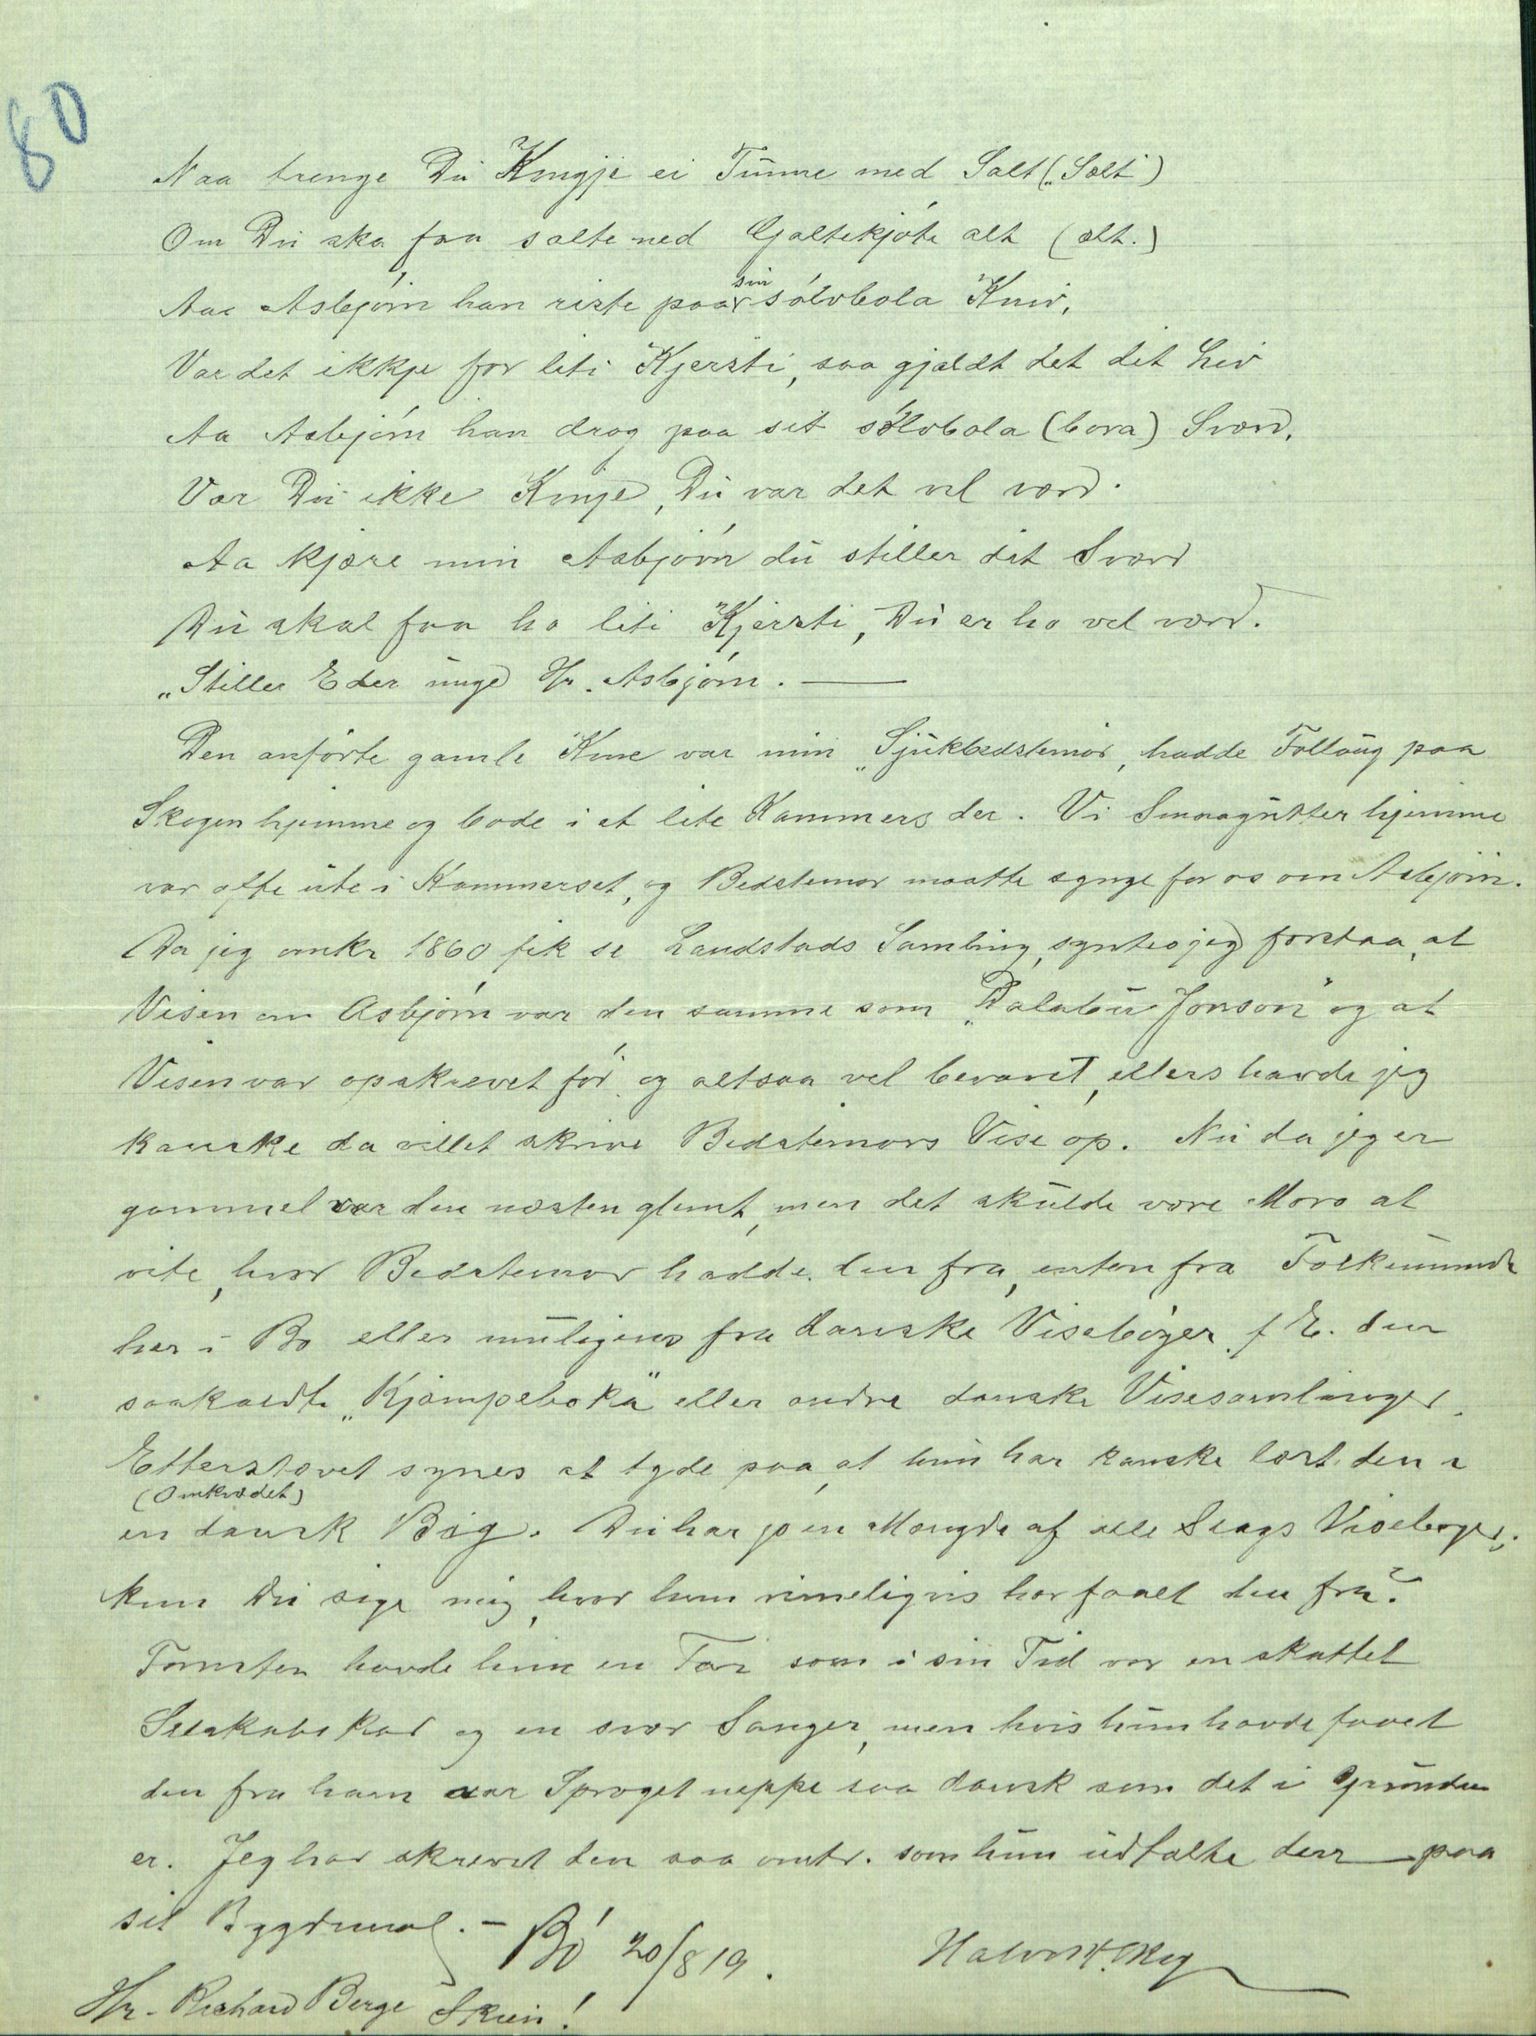 80
Naa trenge Du Kongje ei Tunne med Salt („Sælt“)
Om Du ska faa salte ned Galtekjøte alt (ælt.)
Aa Asbjørn han riste paa sin sølvbola Kniv,
Var det ikkje for liti Kjersti, saa gjældt det dit Liv
Aa Asbjørn han drog paa sit sølvbola (bova) Sværd,
Var Du ikke Konje, Du var det vel værd.
Aa kjære min Asbjørn du stiller dit Sværd
Du skal faa ho liti Kjersti, Du er ho vel værd.
„Stiller Eder unge Hr. Asbjørn. —
Den anførte gamle Kone var min „Sjukbedstemor, hadde Follaug paa
Skogen hjemme og bode i et lite Kammers der. Vi Smaagutter hjemme
var ofte ute i Kammerset, og Bedstemor maatte synge for os om Asbjørn.
Da jeg omkr 1860 fik se Landstads Samling, syntes jeg forstaa, at
Visen om Asbjørn var den samme som „Dalebu Jonson“ og at
Visen var opskrevet før og altsaa vel bevaret, ellers havde jeg
kanske da villet skrive Bedstemors Vise op. Nu da jeg er
gammel var den næsten glemt, men det skulde være Moro at
vite, hvor Bedstemor hadde den fra, enten fra Folkemunde
her i Bø eller muligens fra danske Visebøger f E. den
saakaldte „Kjæmpeboka“ eller andre danske Visesamlinger.
Etterstævet synes at tyde paa, at hun har kanske lært den i
(Omkvædet)
en dansk Bog. Du har jo en Mængde af alle Slags Visebøger,
kan Du sige mig, hvor hun rimeligvis har faaet den fra?
Forresten havde hun en Far som i sin Tid var en skattet
Selskabskar og en svær Sanger, men hvis hun havde faaet
den fra ham var Sproget neppe saa dansk som det i Grunden
er. Jeg har skrevet den saa omtr. som hun udtalte den — paa
sit Bygdemaal. — Bø 20/8 19.
Halvor H.
Hr. Richard Berge Skien!